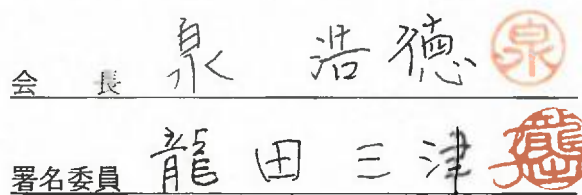 会 長 泉 浩徳 泉
署名委員 龍田三津 龍